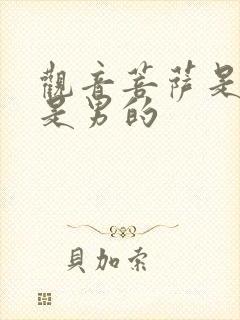 觀音菩薩是
是男的
貝加索